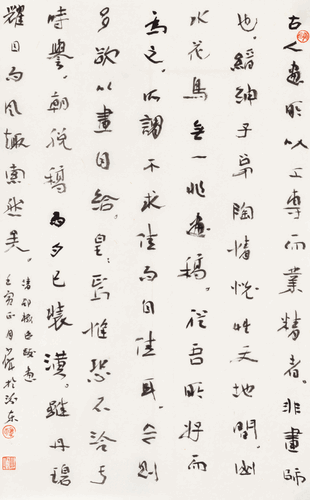 古人畫所以工專而業精者。非畫師
也。縉紳子弟陶情悅性天地間。山
水花鳥無一非畫稿。從吾所將而
為之。所謂不求佳而自佳耳。今則
多欲以畫自給。皇皇焉惟恐不洽於
時譽。朝脫稿而夕已裝潢。雖丹碧
耀目而風趣索然矣。
清邵松年跋畫
壬寅正月